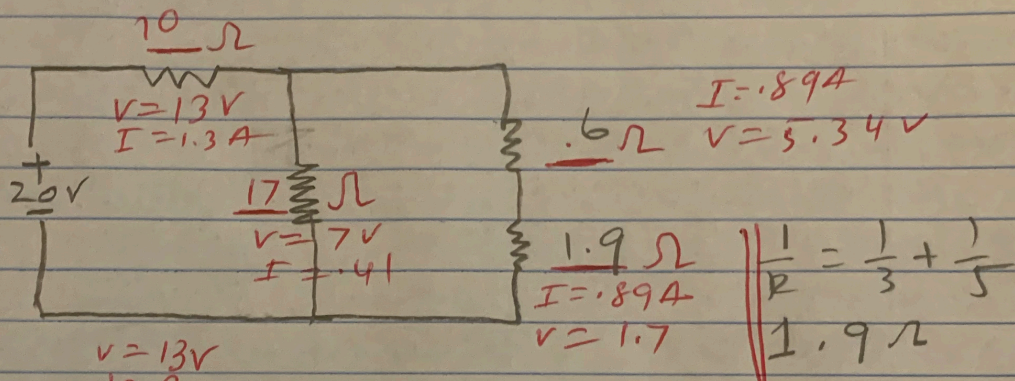 10 Ω
V=13V
I=1.3A
+
20V
17 Ω
V= 7V
I=.41
.6Ω
I=.89A
V=5.34V
1.9 Ω
I=.89A
V=1.7
1/R = 1/3 + 1/5
1.9Ω
V=13V